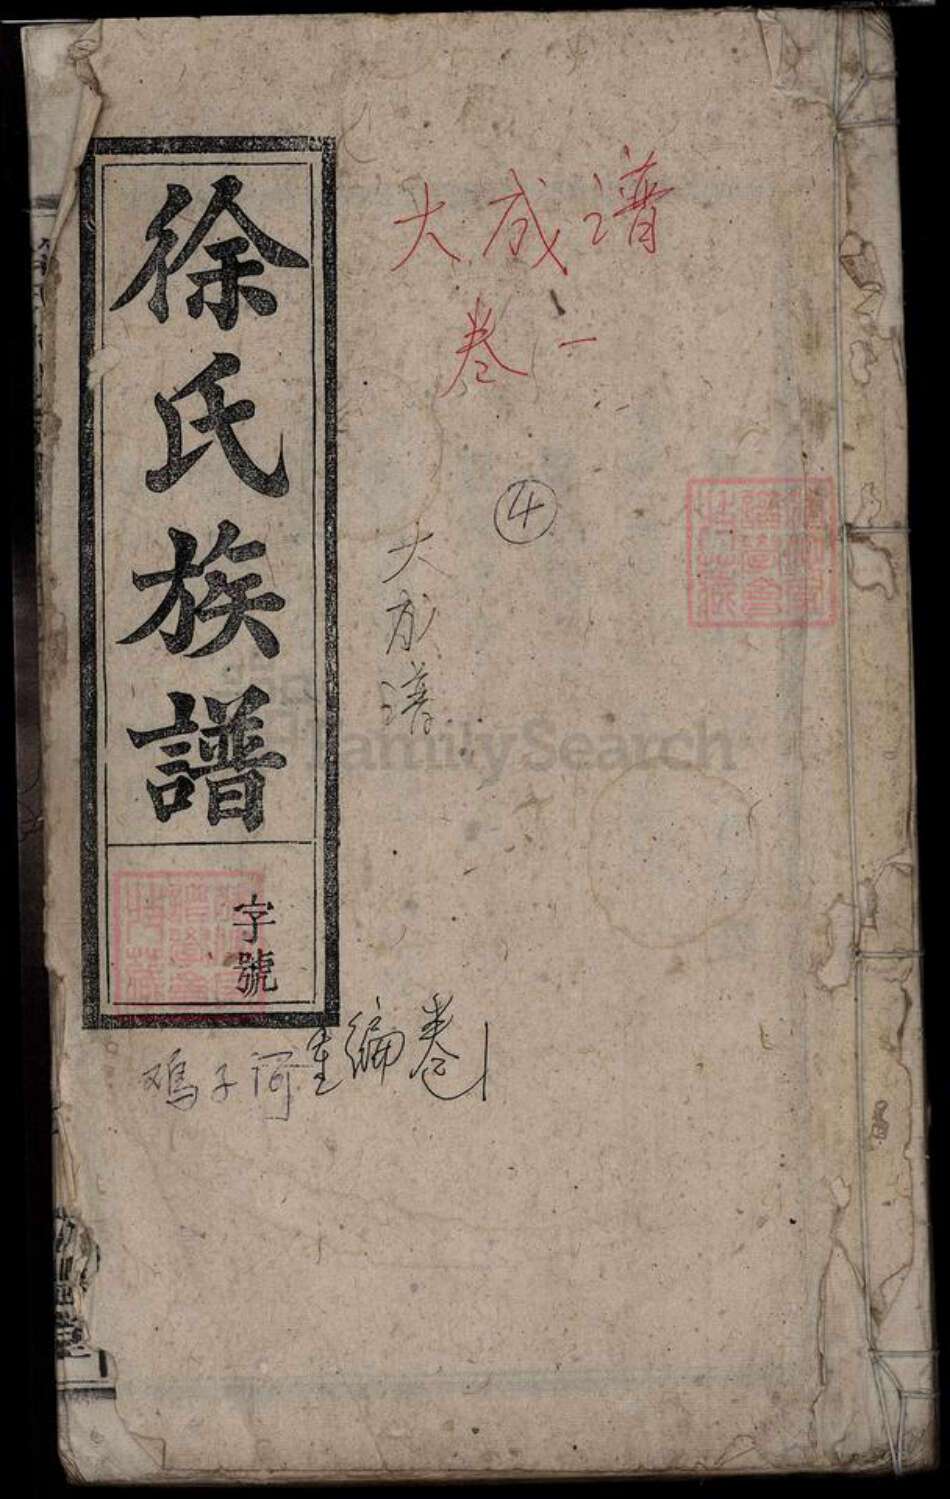 徐氏族譜
字號
大成谱
卷一
④
大成谱
鸡子河重编卷1
FamilySearch